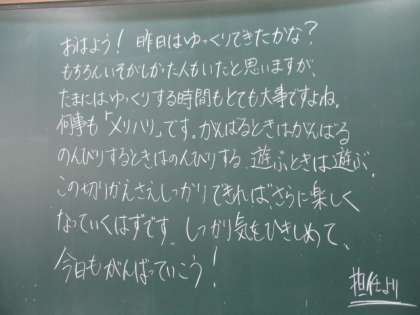 おはよう！ 昨日はゆっくりできたかな？
もちろんいそがしかった人もいたと思いますが、
たまにはゆっくりする時間もとても大事ですよね。
何事も「メリハリ」です。がんばるときはがんばる
のんびりするときはのんびりする、遊ぶときは遊ぶ。
この切りかえさえしっかりできれば、さらに楽しく
なっていくはずです。しっかり気をひきしめて、
今日もがんばっていこう！
担任より